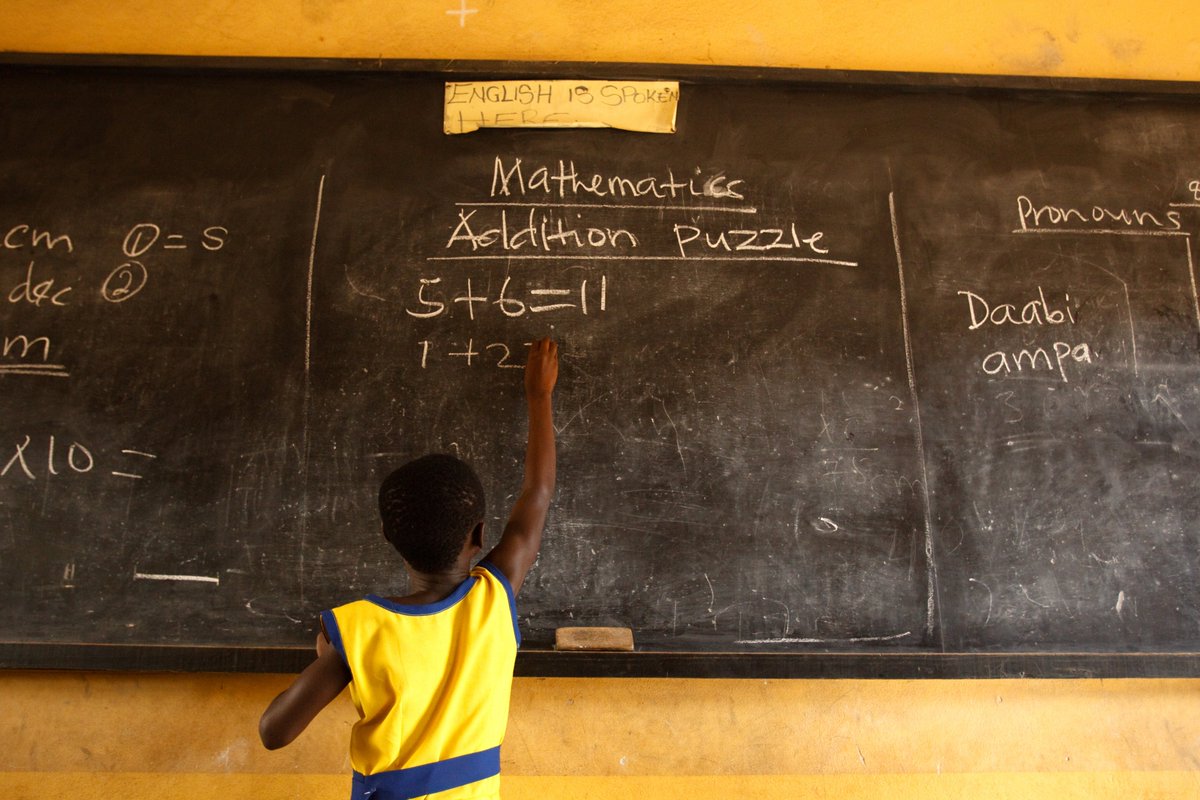 ENGLISH IS SPOKEN
HERE
cm ① = S
dec ②
m
x10 =
Mathematics
Addition puzzle
5+6=11
1+2
Pronouns
Daabi
ampa
3